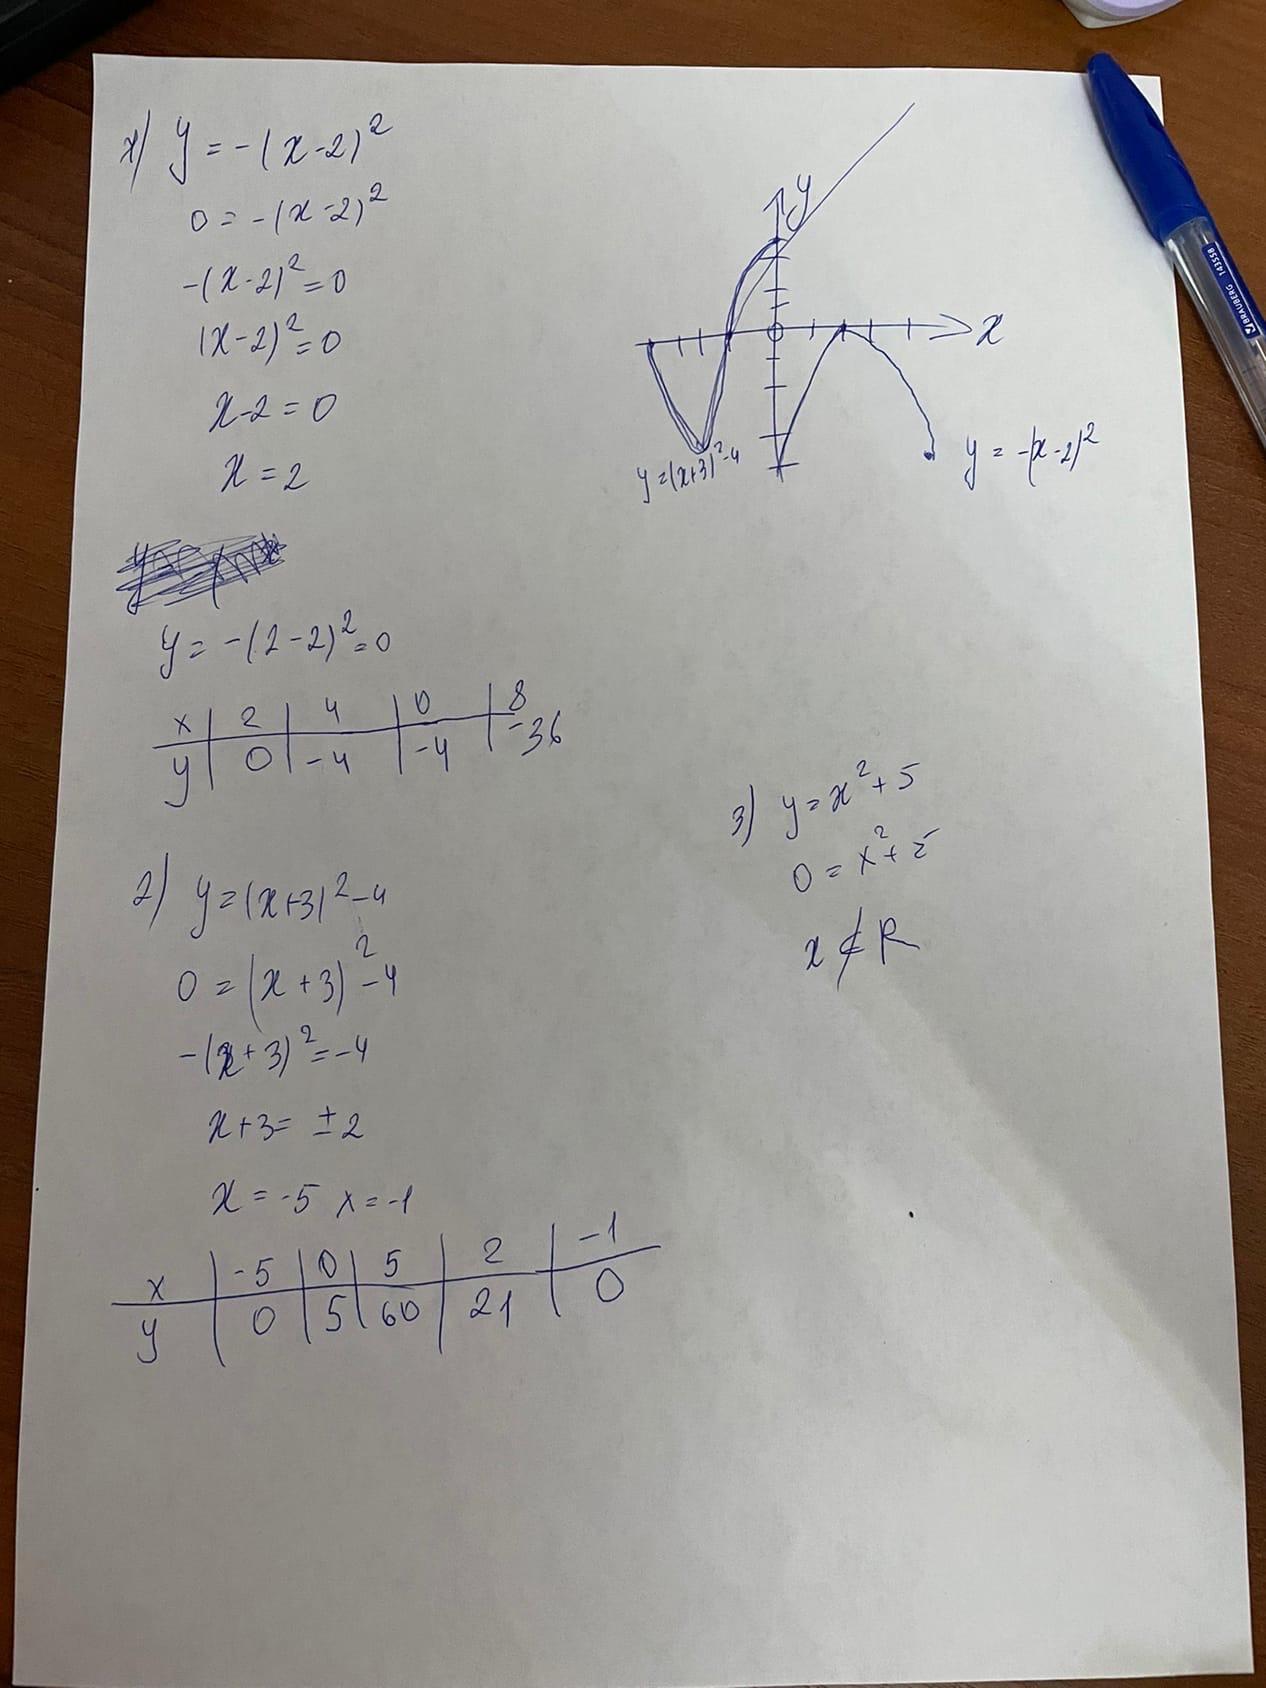 1) y = -(x-2)²
0 = -(x-2)²
-(x-2)² = 0
(x-2)² = 0
x-2 = 0
x = 2
y = -(2-2)² = 0
x | 2 | 4 | 0 | 8
y | 0 | -4 | -4 | -36
2) y = (x+3)² - 4
0 = (x+3)² - 4
-(x+3)² = -4
x+3 = ±2
x = -5 x = -1
x | -5 | 0 | 5 | 2 | -1
y | 0 | 5 | 60 | 21 | 0
y
x
0
y = (x+3)² - 4
y = -(x-2)²
3) y = x² + 5
0 = x² + 5
x ∉ R
BRAUBERG 143558